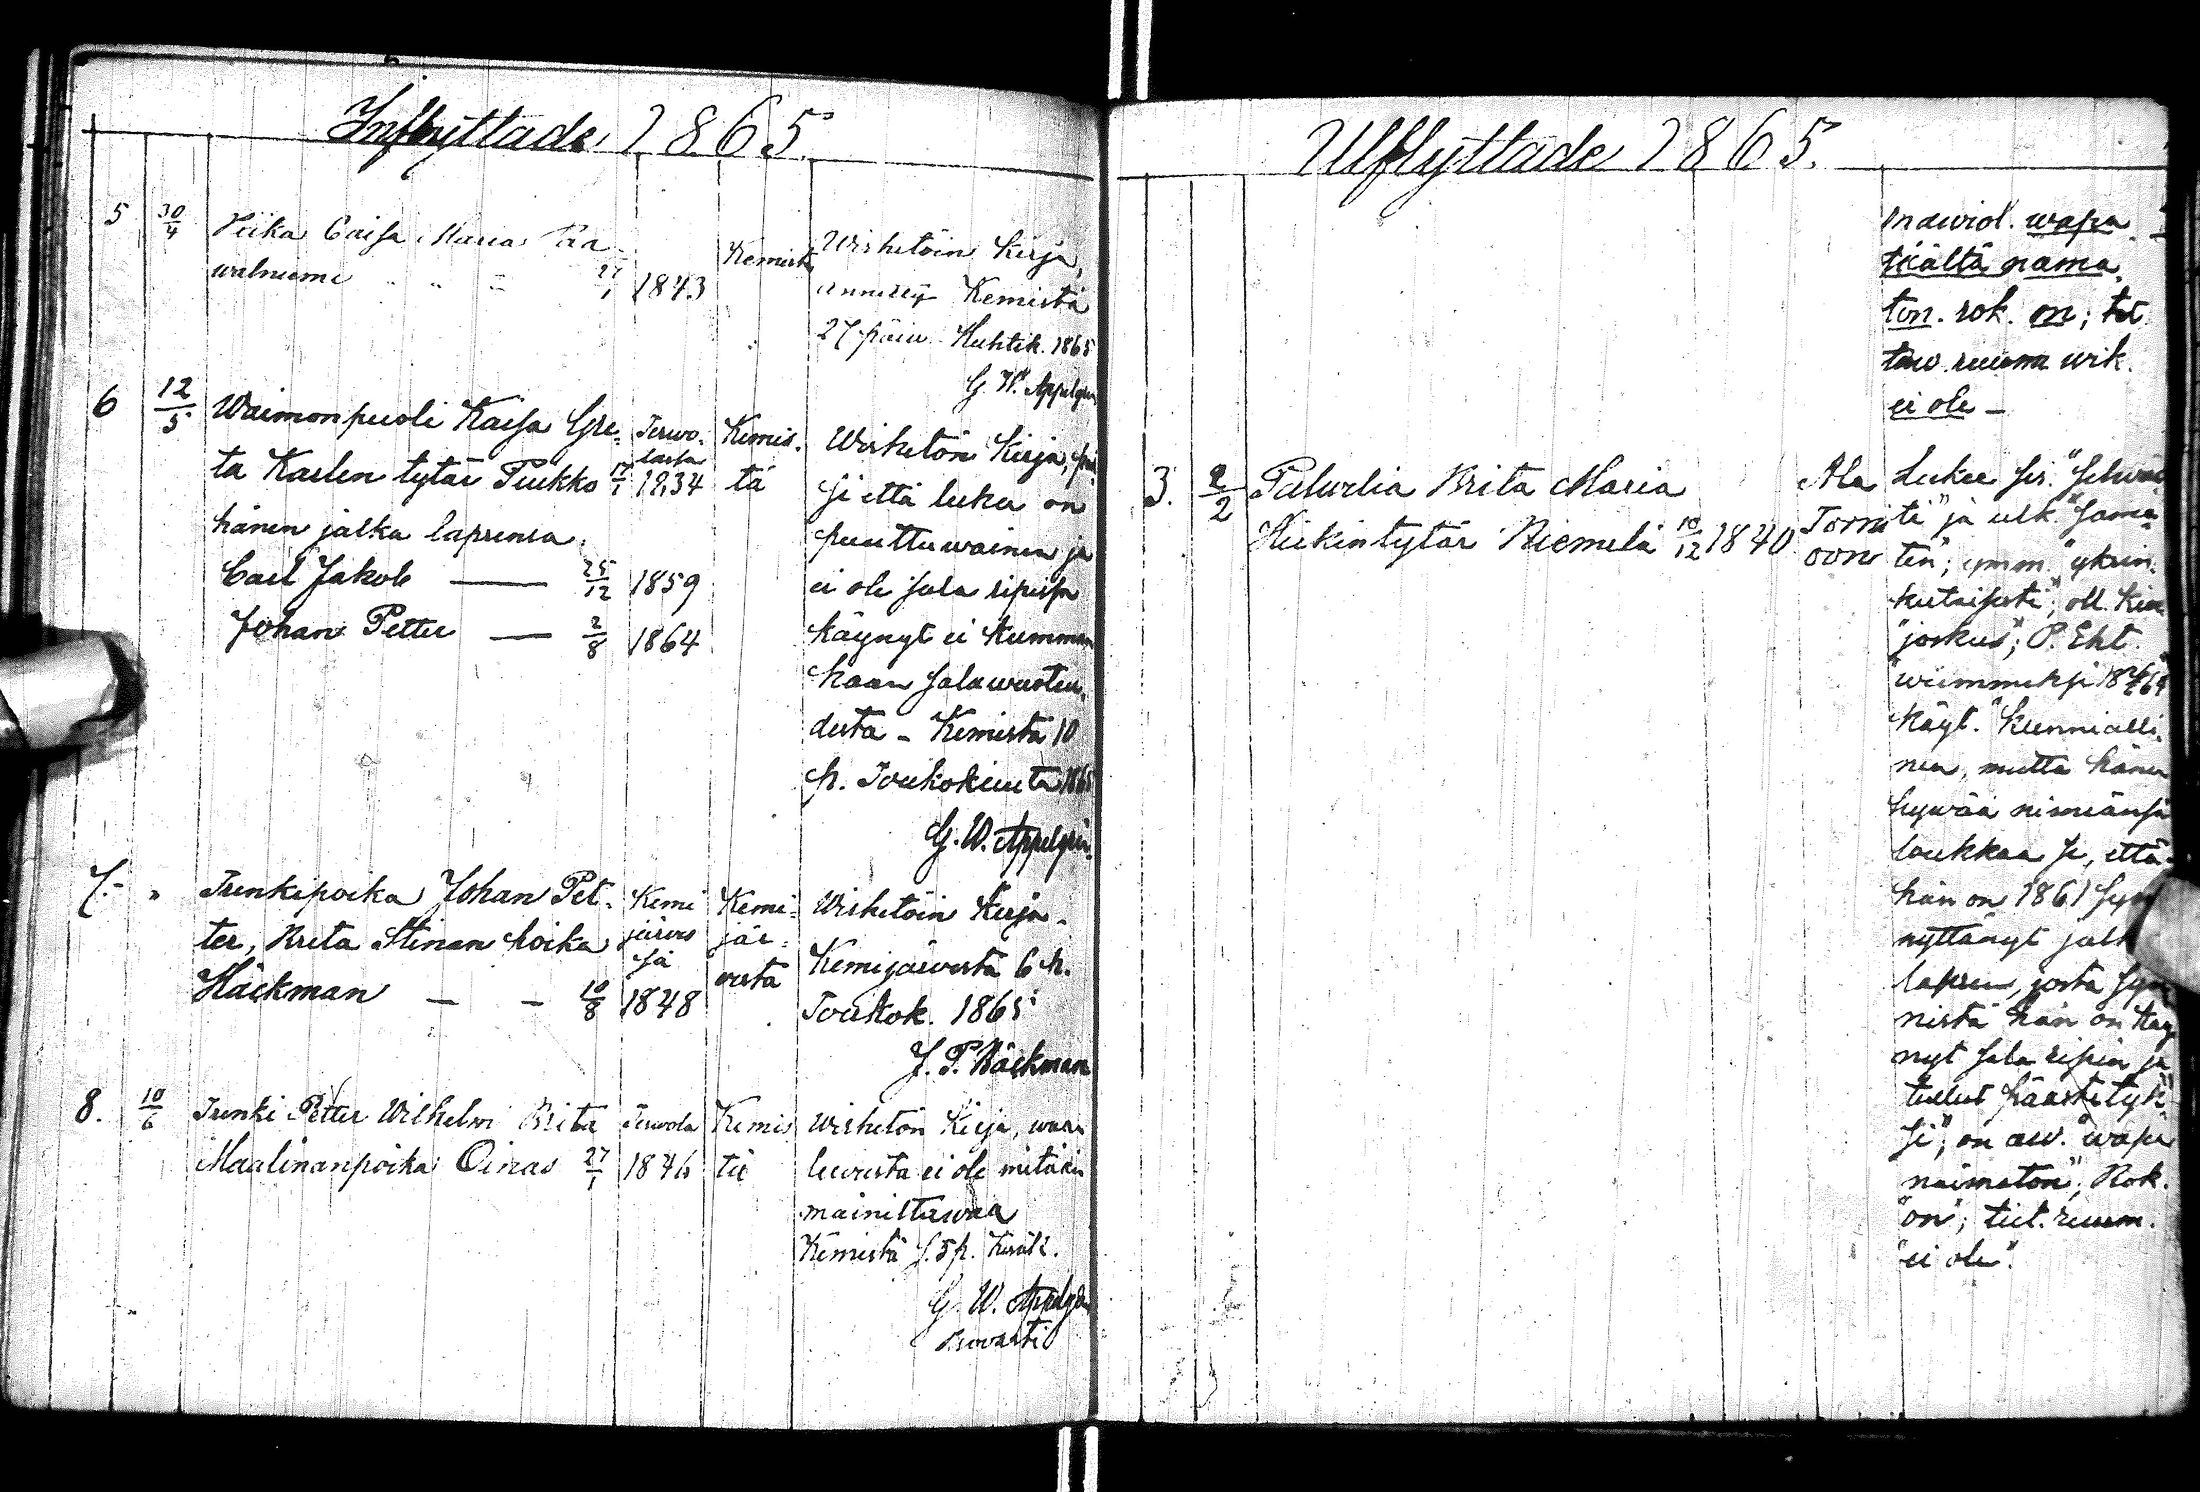 Inflyttade 1865.
5 30/4 Piika Caisa Maria Paa
walniemi " " 27/1 1843 Kemistä
Wirhetöin Kirja,
annettu Kemistä
27 päiw. Huhtik. 1865
G. W. Appelgren
6 12/5 Waimonpuoli Kaisa Gre-
ta Karlen tytär Puikko 17/1 1834
Terwo-
lassa
Kemis-
tä
hänen jalka lapsensa
Carl Jakob — 25/12 1859
Johan Petter — 2/8 1864
Wirhetön Kirja,
si että luku on
puuttuwainen ja
ei ole sala ripissä
käynyt ei kumman
kaan salawuoteu-
desta - Kemistä 10
p. Toukokuuta 1865
G. W. Appelgren
7.- " Trenkipoika Johan Pet-
ter, Brita Stinan poika
Häckman — — 10/8 1848
Kemi
järwes
sä
Kemi-
jär-
westä
Wirhetöin Kirja -
Kemijärwestä 6 p.
Toukok. 1865
J. F. Bäckman
8. 10/6 Trenki Petter Wilhelm Brita
Maalinanpoika Oinas 27/1 1846
Terwola
Kemis
tä
Wirhetön Kirja, wara
luwusta ei ole mitäkän
mainittawaa
Kemistä s. 5 p. Kesäk.
G. W. Appelgren
Utflyttade 1865.
wapa
täältä naima
ton. rok. on; tie
taw. ruum. wik.
ei ole -
3. 2/2 Palwelia Brita Maria
Heikintytär Niemelä 10/12 1840
Ala
Torni
oon
Lukee sis. "selwäs
ti" ja ulk. "sama
ten"; ymm. "yksin
kertaisesti"; oll. Kin.
"joskus"; P. Eht.
"wiimmeksi 18 64"
Käyt. "kunnialli-
nen, mutta hänen
hywää nimeänsä
loukkaa se, että
hän on 1861 syn
nyttänyt jalk
lapsen, josta syn
nistä hän on käy
nyt sala ripin ja
tullut päästetyk
si", on aw. "wapa
naimaton", Rok.
"on"; tiet. ruum.
"ei ole".